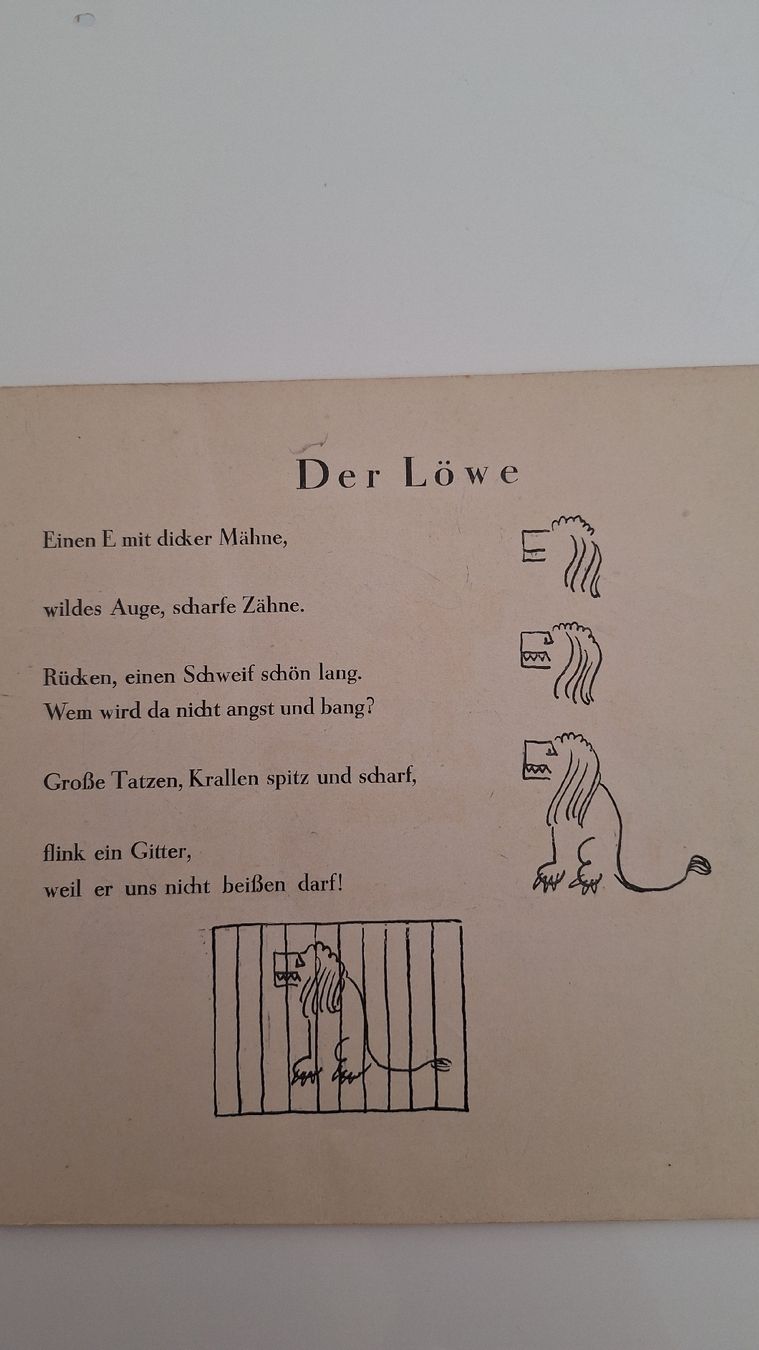 Der Löwe
Einen E mit dicker Mähne,
wildes Auge, scharfe Zähne.
Rücken, einen Schweif schön lang.
Wem wird da nicht angst und bang?
Große Tatzen, Krallen spitz und scharf,
flink ein Gitter,
weil er uns nicht beißen darf!